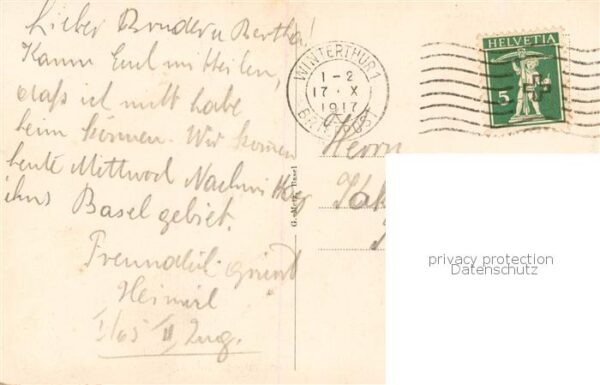 Lieber Bruder u Bertha!
Kann Euch mitteilen,
daß ich nitt habe
heim können. Wir kommen
heute Mittwoch Nachmittag
ins Basel gebiet.
Freundlich grüsst
Heinrich
I/65 II Zug.
WINTERTHUR 1
1-2
17. X
1917
BRIEFPOST
HELVETIA
5
Herrn
G. Metz, Basel
privacy protection
Datenschutz